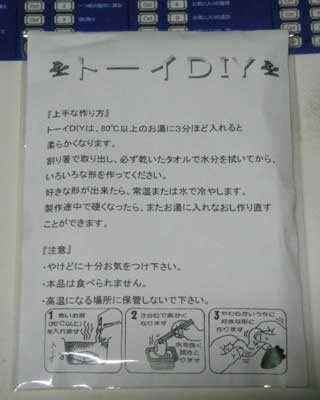 トーイDIY
『上手な作り方』
トーイDIYは、80℃以上のお湯に3分ほど入れると
柔らかくなります。
割り箸で取り出し、必ず乾いたタオルで水分を拭いてから、
いろいろな形を作ってください。
好きな形が出来たら、常温または水で冷やします。
製作途中で硬くなったら、またお湯に入れなおし作り直す
ことができます。
『注意』
・やけどに十分お気をつけ下さい。
・本品は食べられません。
・高温になる場所に保管しないで下さい。
1 熱いお湯
(80℃以上)
を入れます
2 3分位で柔かく
なります
水を良く
拭きと
ります
3 やわらかいうちに
好きな形に
作ります